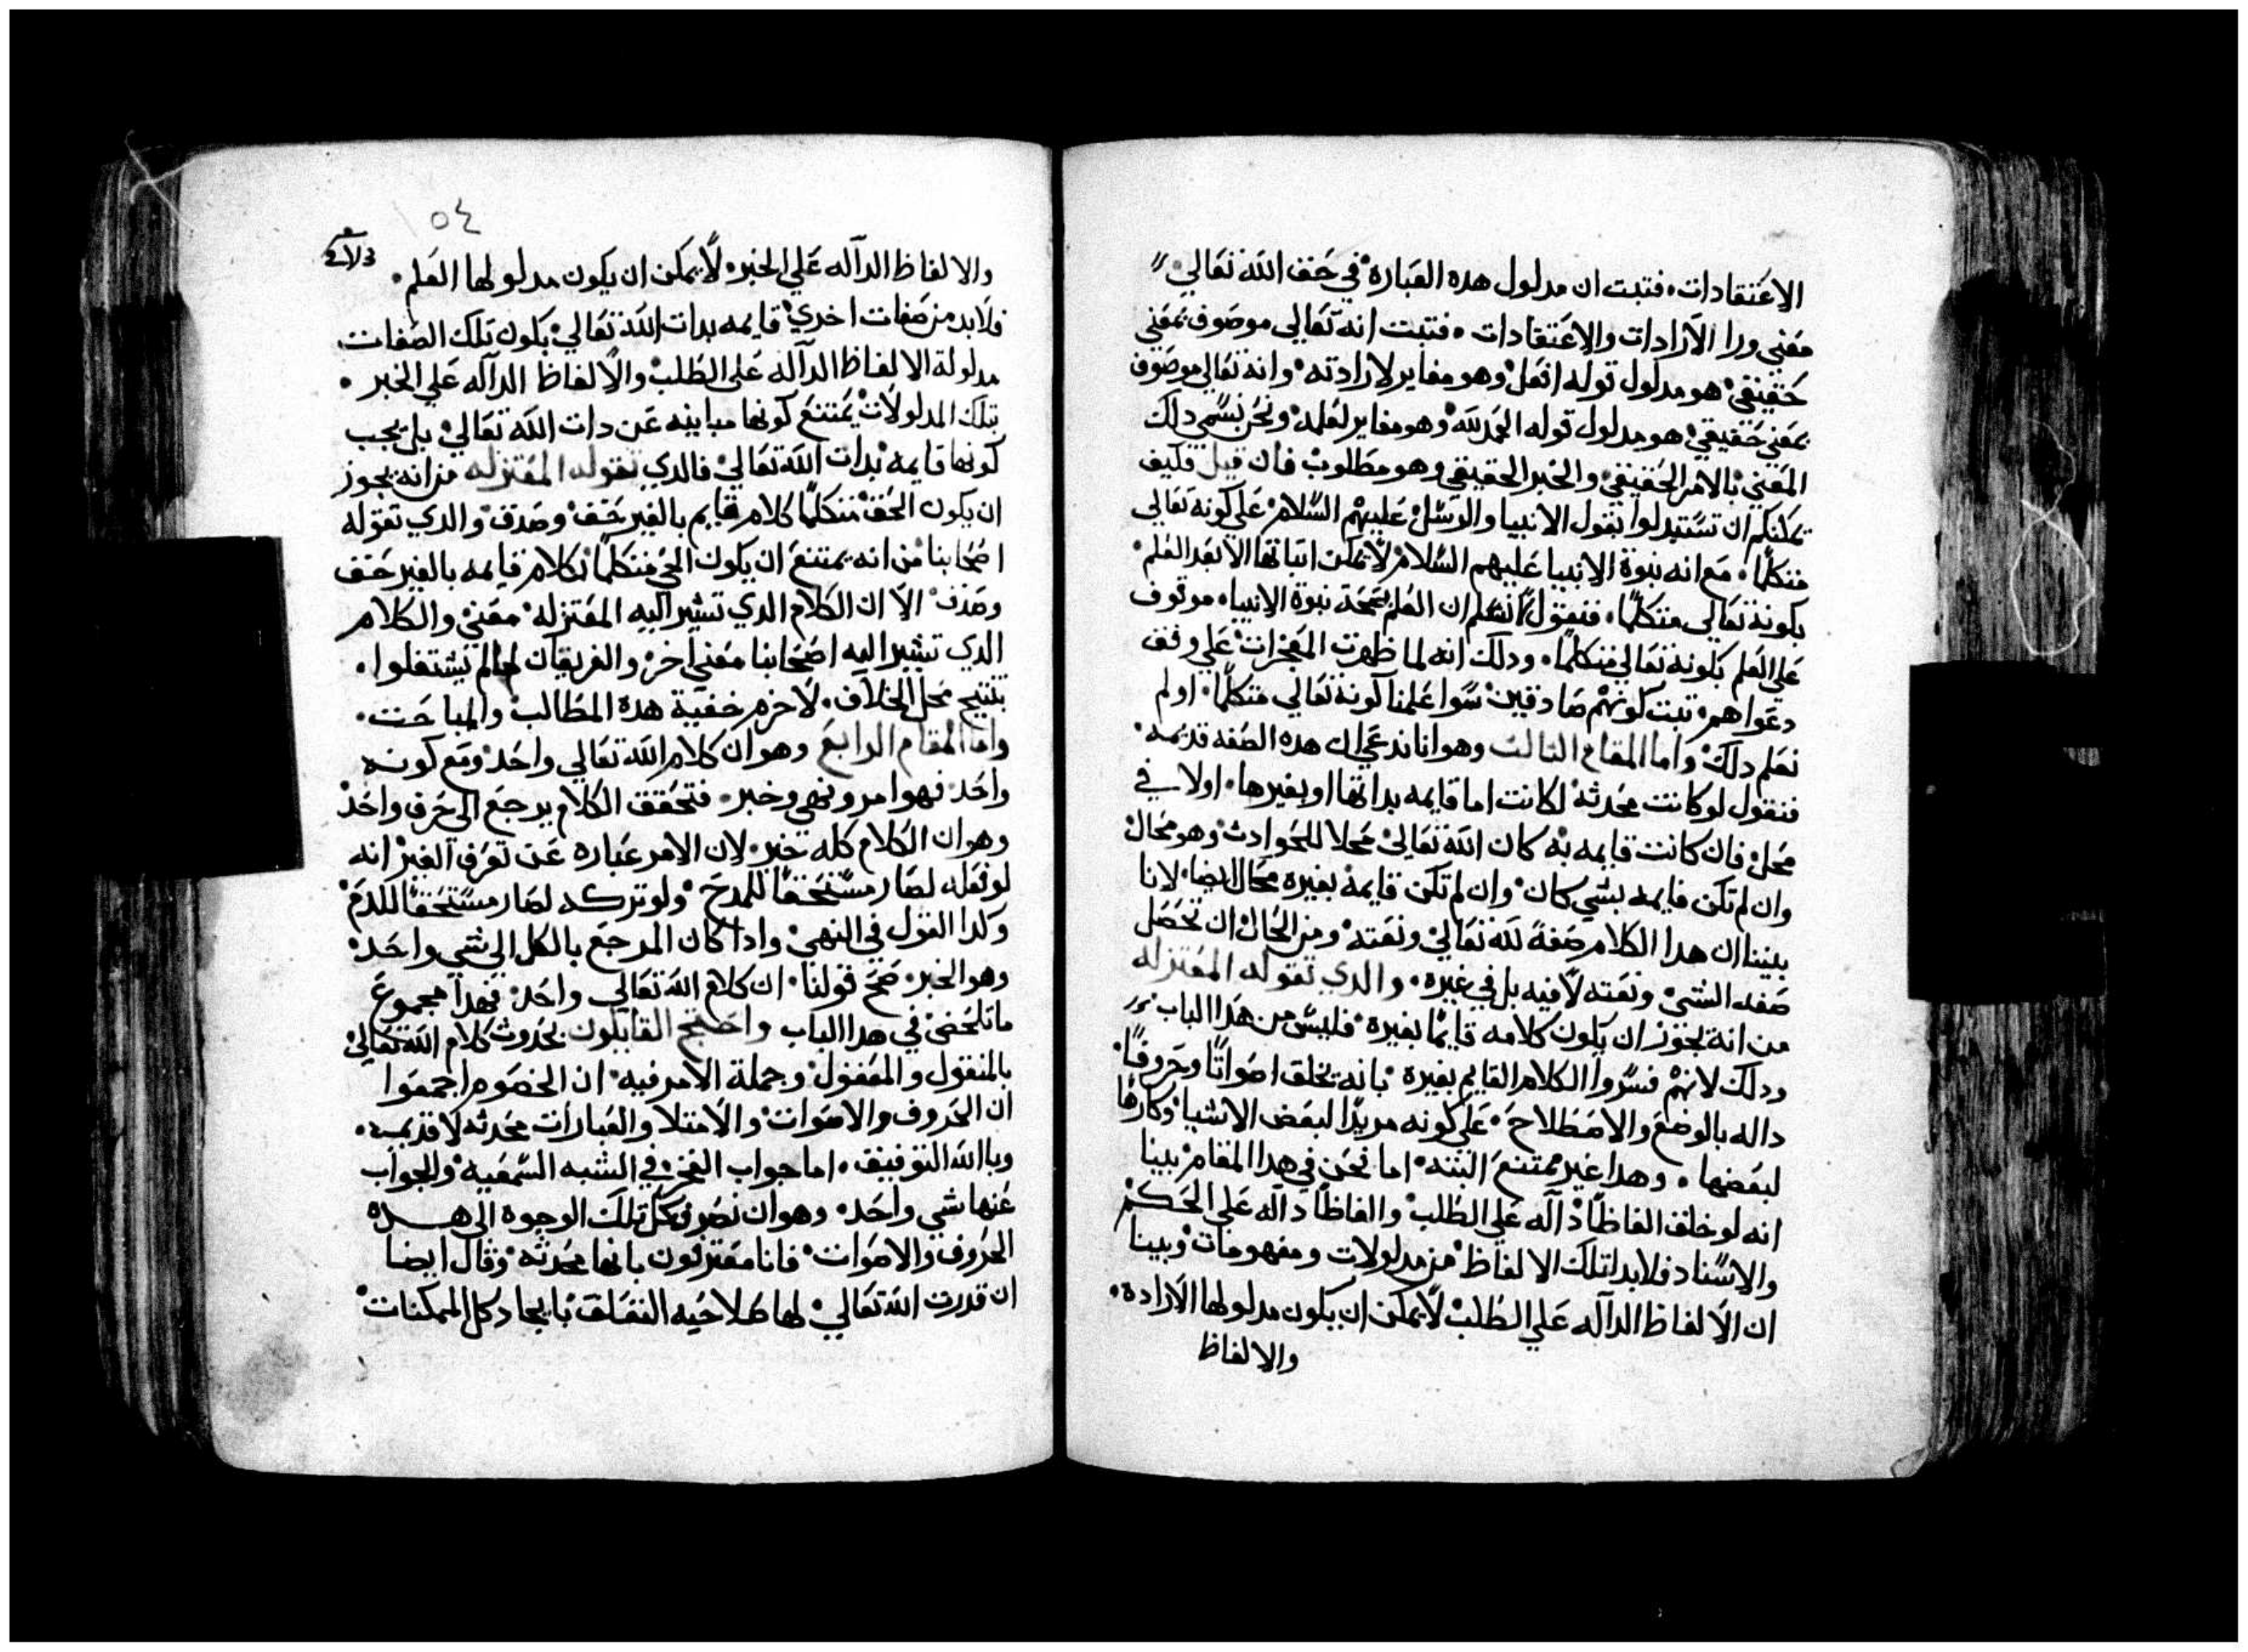 الاعتقادات. فتبت ان مدلول هده العبارة في حق الله تعالي
معني ورا الارادات والاعتقادات. فتبت انه تعالي موصوف بمعني
حقيقي هو مدلول قوله افعل وهو مغاير لارادته وانه تعالي موصوف
بمعني حقيقي هو مدلول قوله الحمد لله وهو مغاير لعلمه ونحن نسمي دلك
المعني بالامر الحقيقي والخبر الحقيقي وهو مطلوب فان قيل فكيف
يمكنكم ان تستدلوا بقول الانبيا والرسل عليهم السلام علي كونه تعالي
متكلما. مع انه نبوة الانبيا عليهم السلام لا يمكن اتباتها الا بعد العلم
بكونه تعالي متكلما. فنقول لا نسلم ان العلم بصحة نبوة الانبياء موقوف
علي العلم بكونه تعالي متكلما. ودلك انه لما ظهرت المعجزات علي وفق
دعواهم تبت كونهم صادقين سوا علمنا كونه تعالي متكلما. او لم
نعلم دلك واما المقام التالت وهو انا ندعي ان هده الصفه قديمه
فنقول لو كانت محدثه لكانت اما قايمه بداتها او بغيرها. اولا في
محل فان كانت قايمه به كان الله تعالي محلا للحوادث وهو محال
وان لم تكن قايمه بشي كان وان لم تكن قايمة بغيره محال ايضا لانا
بينا ان هدا الكلام صفة لله تعالي ونعته ومن المحال ان تحصل
صفه الشي ونعته لا فيه بل في غيره. والدي تقوله المعتزله
من انه يجوز ان يكون كلامه قايما بغيره فليس من هدا الباب
ودلك لانهم فسروا الكلام القايم بغيره بانه يخلق اصواتا وحروفا
داله بالوضع والاصطلاح. علي كونه مريدا لبعض الاشيا وكارها
لبعضها. وهدا غير ممتنع البته اما نحن في هدا المقام بينا
انه لو خلق الفاظا داله علي الطلب والفاظا داله علي الحكم
والاسناد فلابد لتلك الالفاظ من مدلولات ومفهومات وبينا
ان الالفاظ الداله علي الطلب لا يمكن ان يكون مدلولها الارادة
والالفاظ
٥٤
والالفاظ الداله علي الخبر لا يمكن ان يكون مدلولها العلم.
فلابد من صفات اخري قايمه بدات الله تعالي يكون تلك الصفات
مدلولة الالفاظ الداله علي الطلب والالفاظ الداله علي الخبر.
تلك المدلولات يمتنع كونها مباينه عن دات الله تعالي بل يجب
كونها قايمه بدات الله تعالي فالدي تقوله المعتزله من انه يجوز
ان يكون الحق متكلما كلام قايم بالغير حق وصدق والدي تقوله
اصحابنا من انه يمتنع ان يكون الحي متكلما بكلام قايمه بالغير حق
وصدق الا ان الكلام الدي تشير اليه المعتزله معني والكلام
الدي تشير اليه اصحابنا معني اخر والفريقان لم يشتغلوا.
بتنتيج محل الخلاف. لا جرم خفية هده المطالب والمباحت.
واما المقام الرابع وهو ان كلام الله تعالي واحد ومع كونه
واحد فهو امر ونهي وخبر. فتحقق الكلام يرجع الي حرف واحد
وهو ان الكلام كله خبر لان الامر عباره عن تعرف الغير انه
لو فعله لصار مستحقا للمدح ولو تركه لصار مستحقا للدم
وكدا القول في النهي وادا كان المرجع بالكل الي شي واحد
وهو الخبر صح قولنا. ان كلام الله تعالي واحد فهدا مجموع
ما تلخص في هدا الباب واحتج القايلون بحدوث كلام الله تعالي
بالمنقول والمعقول وجملة الامر فيه ان الخصوم اجمعوا
ان الحروف والاصوات والامتلا والعبارات محدثه لا قديمه.
وبالله التوفيق. اما جواب الفخر في الشبه السمعيه والجواب
عنها شي واحد وهو ان نصرف كل تلك الوجوه الي هـــده
الحروف والاصوات فانا معترفون بانها محدثه وقال ايضا
ان قدرت الله تعالي لها صلاحيه التعلق بايجاد كل الممكنات